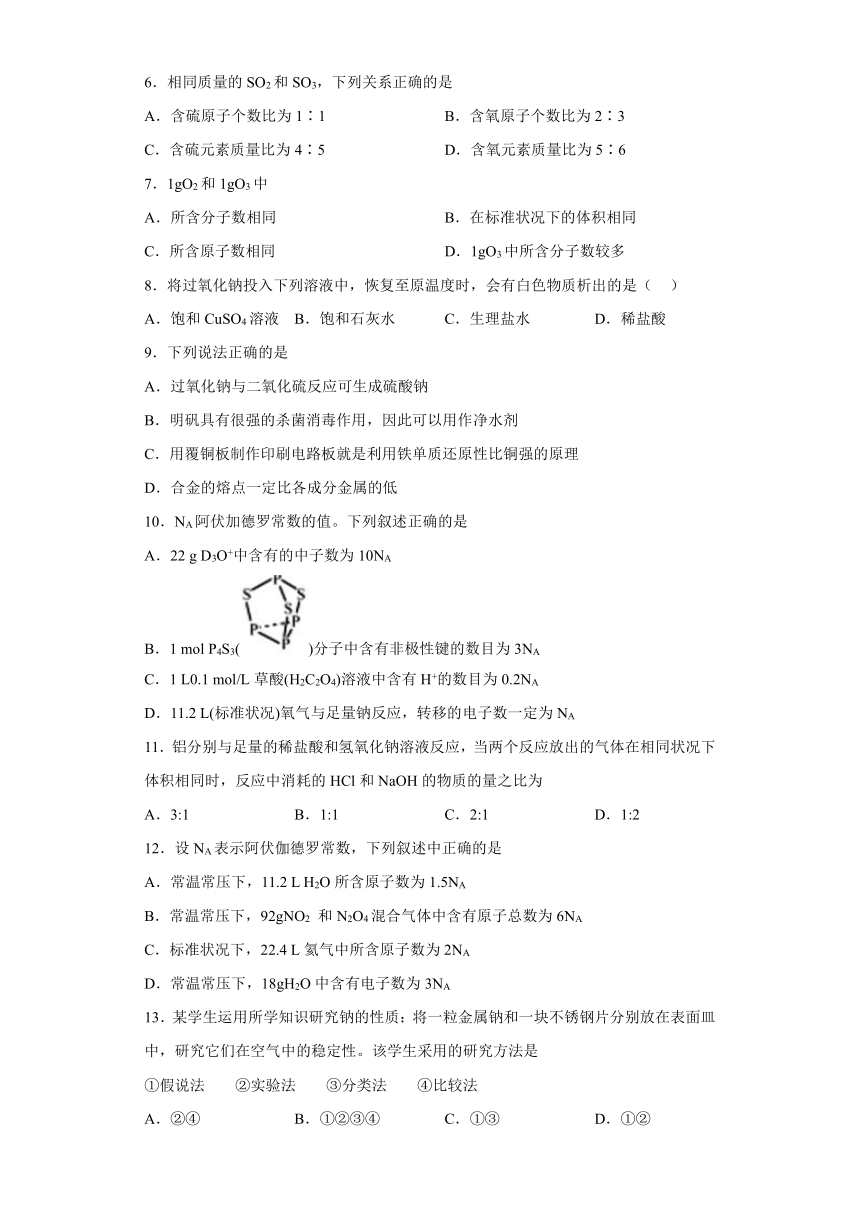 6．相同质量的 SO2和 SO3，下列关系正确的是
A．含硫原子个数比为 1∶1 B．含氧原子个数比为 2∶3
C．含硫元素质量比为 4∶5 D．含氧元素质量比为 5∶6
7．1gO2和 1gO3中
A．所含分子数相同 B．在标准状况下的体积相同
C．所含原子数相同 D．1gO3中所含分子数较多
8．将过氧化钠投入下列溶液中，恢复至原温度时，会有白色物质析出的是（ ）
A．饱和 CuSO4溶液 B．饱和石灰水 C．生理盐水 D．稀盐酸
9．下列说法正确的是
A．过氧化钠与二氧化硫反应可生成硫酸钠
B．明矾具有很强的杀菌消毒作用，因此可以用作净水剂
C．用覆铜板制作印刷电路板就是利用铁单质还原性比铜强的原理
D．合金的熔点一定比各成分金属的低
10．NA阿伏加德罗常数的值。下列叙述正确的是
A．22 g D3O+中含有的中子数为 10NA
P
S S
S
P P
P
B．1 mol P4S3( )分子中含有非极性键的数目为 3NA
C．1 L0.1 mol/L 草酸(H2C2O4)溶液中含有 H+的数目为 0.2NA
D．11.2 L(标准状况)氧气与足量钠反应，转移的电子数一定为 NA
11．铝分别与足量的稀盐酸和氢氧化钠溶液反应，当两个反应放出的气体在相同状况下
体积相同时，反应中消耗的 HCl 和 NaOH 的物质的量之比为
A．3:1 B．1:1 C．2:1 D．1:2
12．设 NA表示阿伏伽德罗常数，下列叙述中正确的是
A．常温常压下，11.2 L H2O 所含原子数为 1.5NA
B．常温常压下，92gNO2 和 N2O4混合气体中含有原子总数为 6NA
C．标准状况下，22.4 L 氦气中所含原子数为 2NA
D．常温常压下，18gH2O 中含有电子数为 3NA
13．某学生运用所学知识研究钠的性质：将一粒金属钠和一块不锈钢片分别放在表面皿
中，研究它们在空气中的稳定性。该学生采用的研究方法是
①假说法 ②实验法 ③分类法 ④比较法
A．②④ B．①②③④ C．①③ D．①②